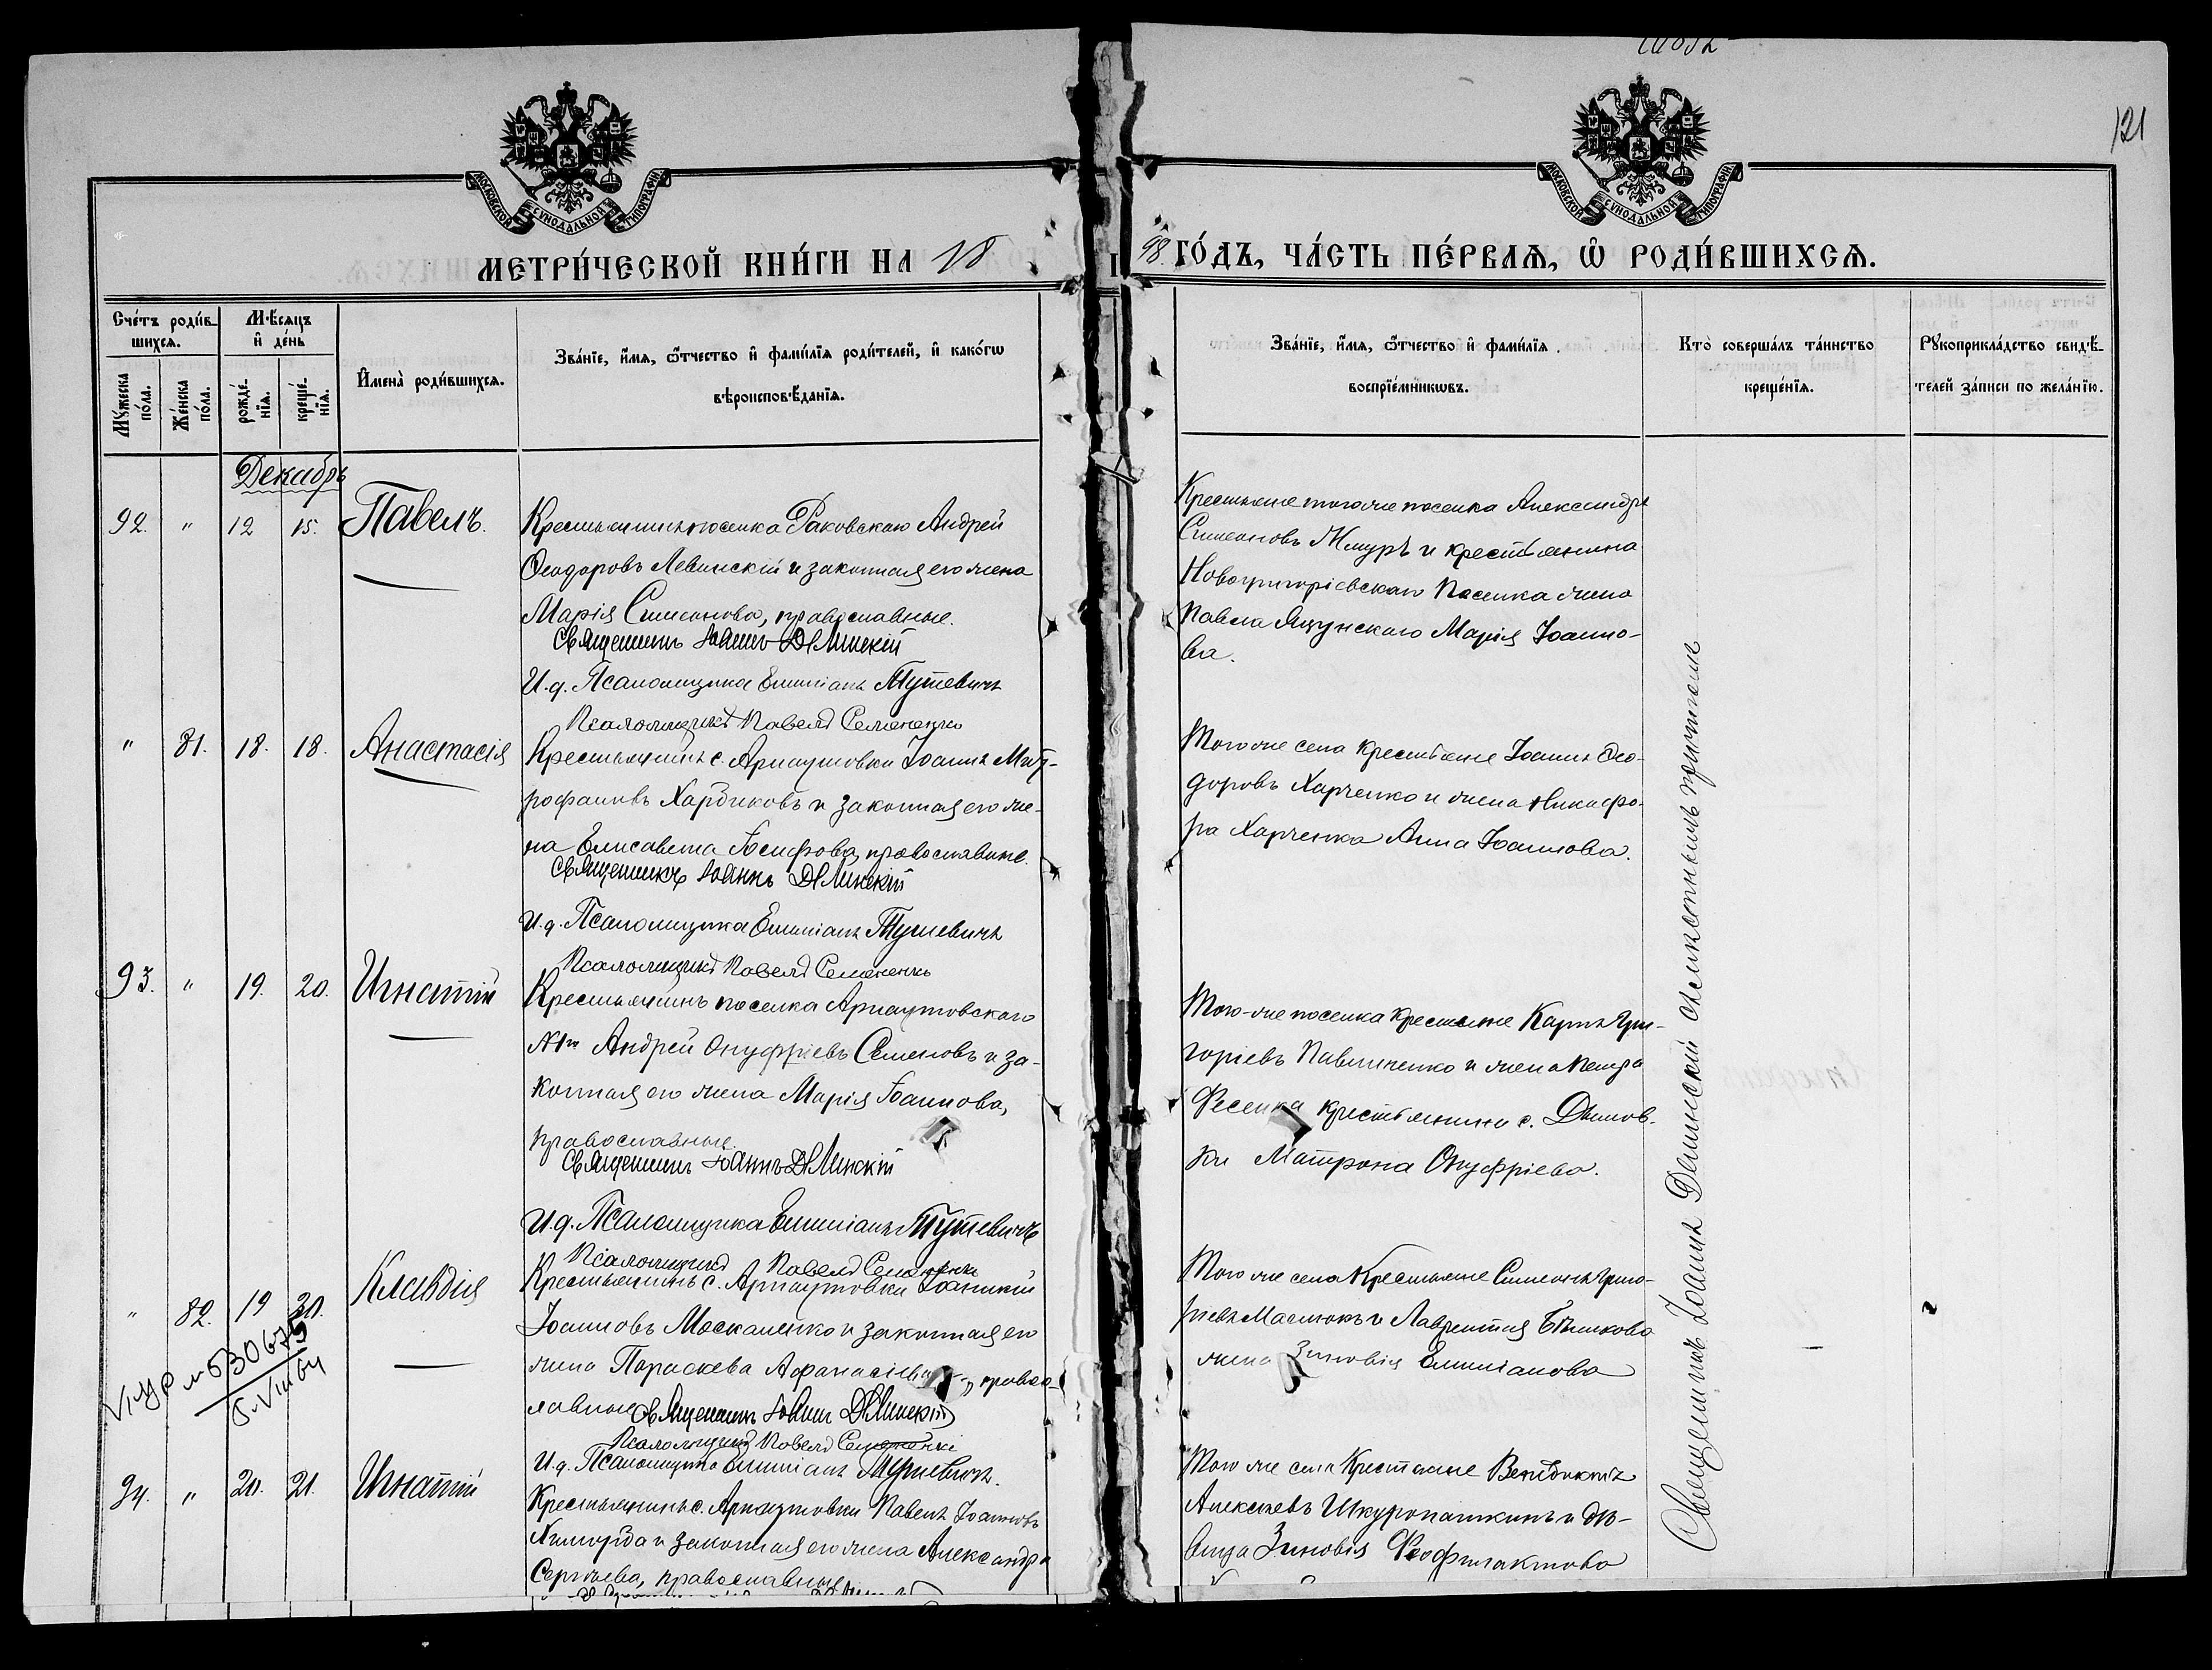 121
МОСКОВСКОЙ СѴНОДАЛЬНОЙ ТИПОГРАФІИ
МОСКОВСКОЙ СѴНОДАЛЬНОЙ ТИПОГРАФІИ
МЕТРИ́ЧЕСКОЙ КНИ́ГИ НА 18
98 ГО́ДЪ, ЧА́СТЬ ПЕ́РВАЯ, Ѡ РОДИ́ВШИХСЯ.
Сче́тъ роди́в-
шихся.
Мꙋ́жеска по́ла.
Же́нска по́ла.
Мѣ́сяцъ и҆ де́нь
рожде́-нїя.
креще́-нїя.
И҆мена̀ роди́вшихся.
Зва́нїе, и҆́мя, ѻ҆́тчество и҆ фами́лїя роди́телей, и҆ како́гѡ
вѣроисповѣ́данїя.
Зва́нїе, и҆́мя, ѻ҆́тчество и҆ фами́лїя
воспрїе́мникѡвъ.
Кто̀ соверша́лъ та́инство
креще́нїя.
Рꙋкоприкла́дство свидѣ́-
телей за́писи по жела́нїю.
Декабрь
92. " 12 15. Павелъ.
Крестьянинъ поселка Раковскаго Андрей
Ѳеодоровъ Левинскій и законная его жена
Марія Симеонова, православные.
Священникъ Іоаннъ Дѣлинскій
И.д. Псаломщика Емиліанъ Тушевичъ
Псаломщикъ Павелъ Семененко
Крестьяне того-же поселка Александръ
Симеоновъ Жмуръ и крестьянина
Новогригоріевскаго поселка жена
Павла Яцунскаго Марія Іоанно-
ва.
" 81. 18. 18. Анастасія
Крестьянинъ с. Арнаутовки Іоаннъ Мит-
рофановъ Хардиковъ и законная его же-
на Елисавета Іосифова, православные.
Священникъ Іоаннъ Дѣлинскій
И.д. Псаломщика Емиліанъ Тушевичъ
Псаломщикъ Павелъ Семененко
Того же села крестьяне Іоаннъ Ѳео-
доровъ Харченко и жена Никифо-
ра Харченка Анна Іоаннова.
93. " 19. 20. Игнатій
Крестьянинъ поселка Арнаутовскаго
№1й Андрей Онуфріевъ Семеновъ и за-
конная его жена Марія Іоаннова,
православные.
Священникъ Іоаннъ Дѣлинскій
И.д. Псаломщика Емиліанъ Тушевичъ
Псаломщикъ Павелъ Семененко
Того-же поселка крестьяне Карпъ Гри-
горіевъ Павлиненко и жена
Фесенка крестьянина с. Дымов-
ки Матрона Онуфріева.
" 82. 19 20. Клавдія
Крестьянинъ с. Арнаутовки Іоанникій
Іоанновъ Москаленко и законная его
жена Параскева Афанасіева, правос-
лавные Священникъ Іоаннъ Дѣлинскій
Псаломщикъ Павелъ Семененко
И.д. Псаломщика Емиліанъ Тушевичъ.
Того же села крестьяне Симеонъ Григо-
ріевъ Маслюкъ и Лаврентія Бѣликова
жена Зиновія Емиліанова
94. " 20. 21. Игнатій
Крестьянинъ с. Арнаутовки Павелъ Іоанновъ
и законная его жена Александра
Сергіева, православные
Того же села крестьяне Венедиктъ
Алексѣевъ Шкуропаткинъ и дѣ-
вица Зиновія Феофилактова
Священникъ Іоаннъ Дѣлинскій съ мѣстнымъ причтомъ